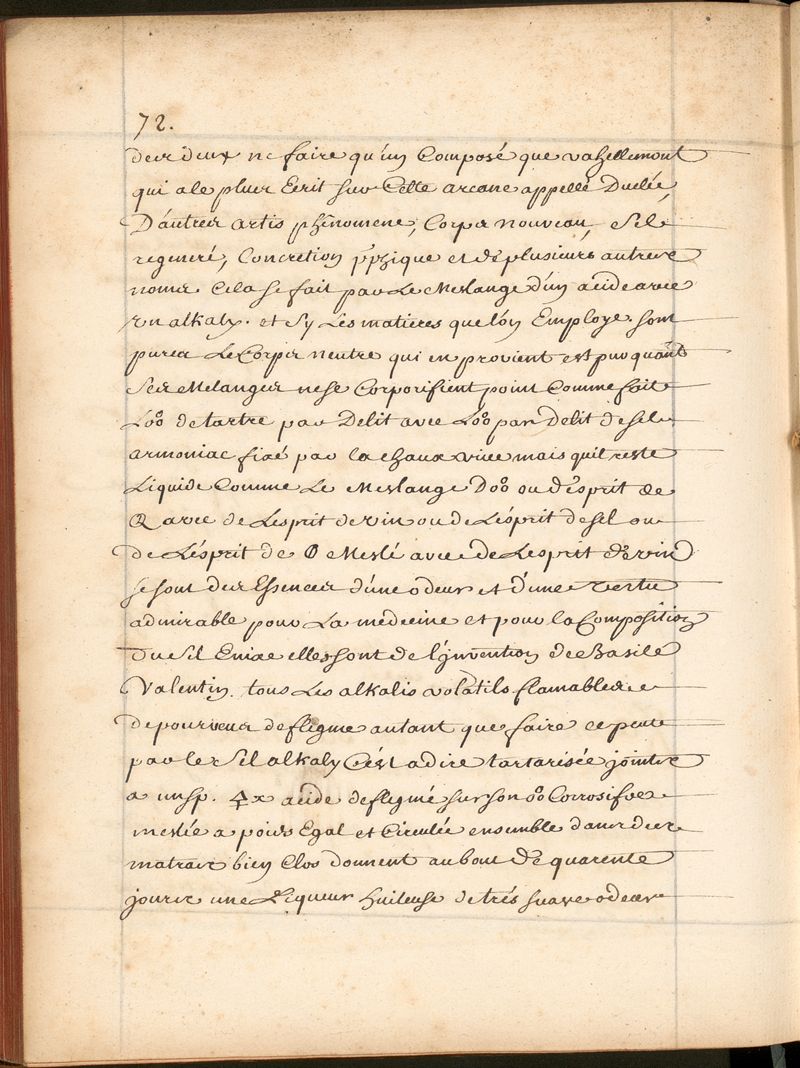 72.
des deux ne faire qu'un Composé que vahellmont
qui a le plus Ecrit sur Cette arcane appellé Duelée,
D'autres artis phenomene, Corps nouveau, Sel
regeneré, Concretion physique et de plusieurs autres
noms Cela se fait par Le Meslange d'un acide avec
un alkaly. et sy Les matieres que lon Employe sont
pures Le Corps neutre qui en provient est pur quand
Ses Melanges ne se Corporifient point Comme fait
Loo de tartre par Delit avec Loo par Delit de sel
armoniac fixé par la chaux vive mais quil reste
Liquide Comme Le Meslange Doo ou d'esprit de
avec de Lesprit de vin ou de Lésprit de sel ou
de Lésprit de Meslé avec de Lesprit de vin
se sont des Essences d'une odeur et d'une vertu
admirable pour La medecine et pour la Composition
du Sel Enixe elles sont de l'jnvention de Basile
Valentin. tous Les alkalis volatils flamables et
depourveus de flegme autant que faire ce peut
par le Sel alkaly C'ést a dire tartarisée jointe
a un sp. acide deflegmé sur son oo Corrosifve
meslée a poids Egal et Circulée ensemble dans des
matras bien Clos donnent au bout de quarente
jours une Liqueur huileuse de trés suave odeur